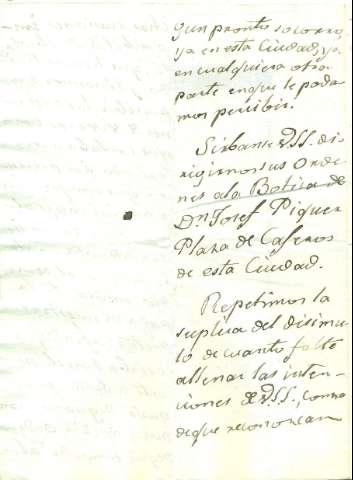 gun pronto socorro,
ya en esta Ciudad, y a
en cualquiera otra
parte en que le poda
mos percibir.
Sirbanse VSS. di-
rigirnos sus Orde
nes a la Botica de
Dn. Josef Piquer
Plaza de Caferos
de esta Ciudad.
Repetimos la
suplica del disimu
lo de cuanto falte
allenar las inten-
ciones de VSS., como
de que reconozcan